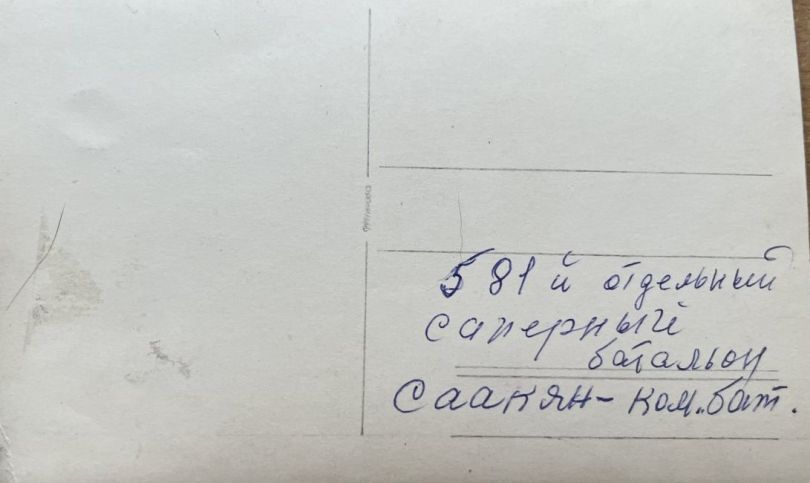 581й отдельный
саперный
батальон
Саакян - ком. бат.